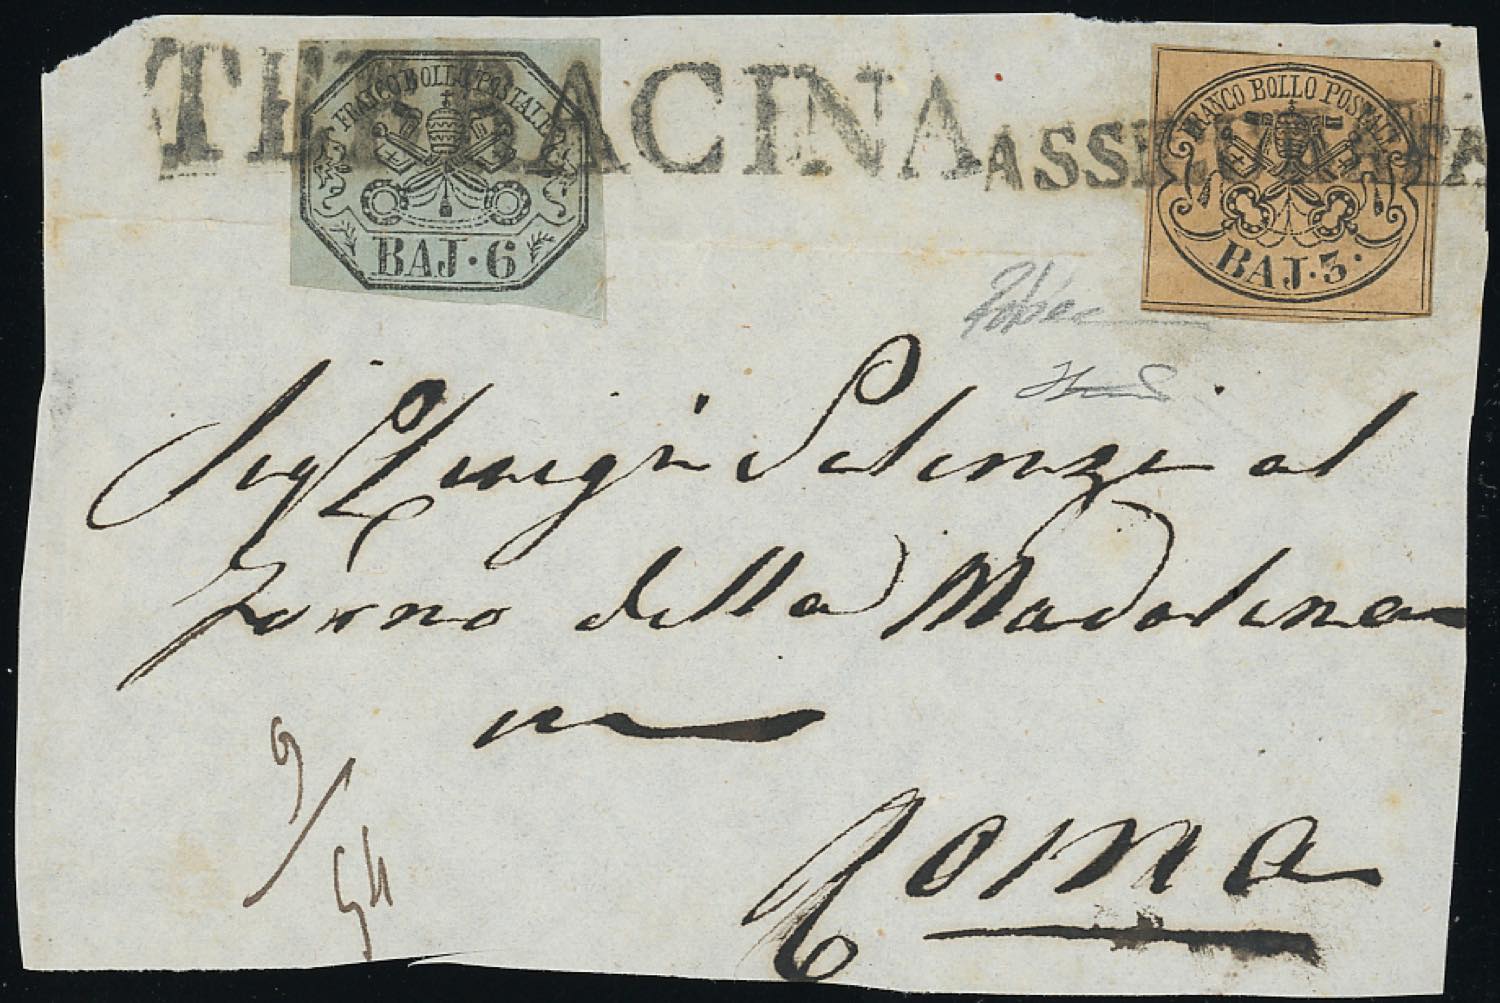 TERRACINA
ASSI
FRANCO BOLLO POSTALE
BAJ·6
FRANCO BOLLO POSTALE
BAJ·3·
Sig Luigi Valenzi al
Forno della Madalena
in
Roma
9/54